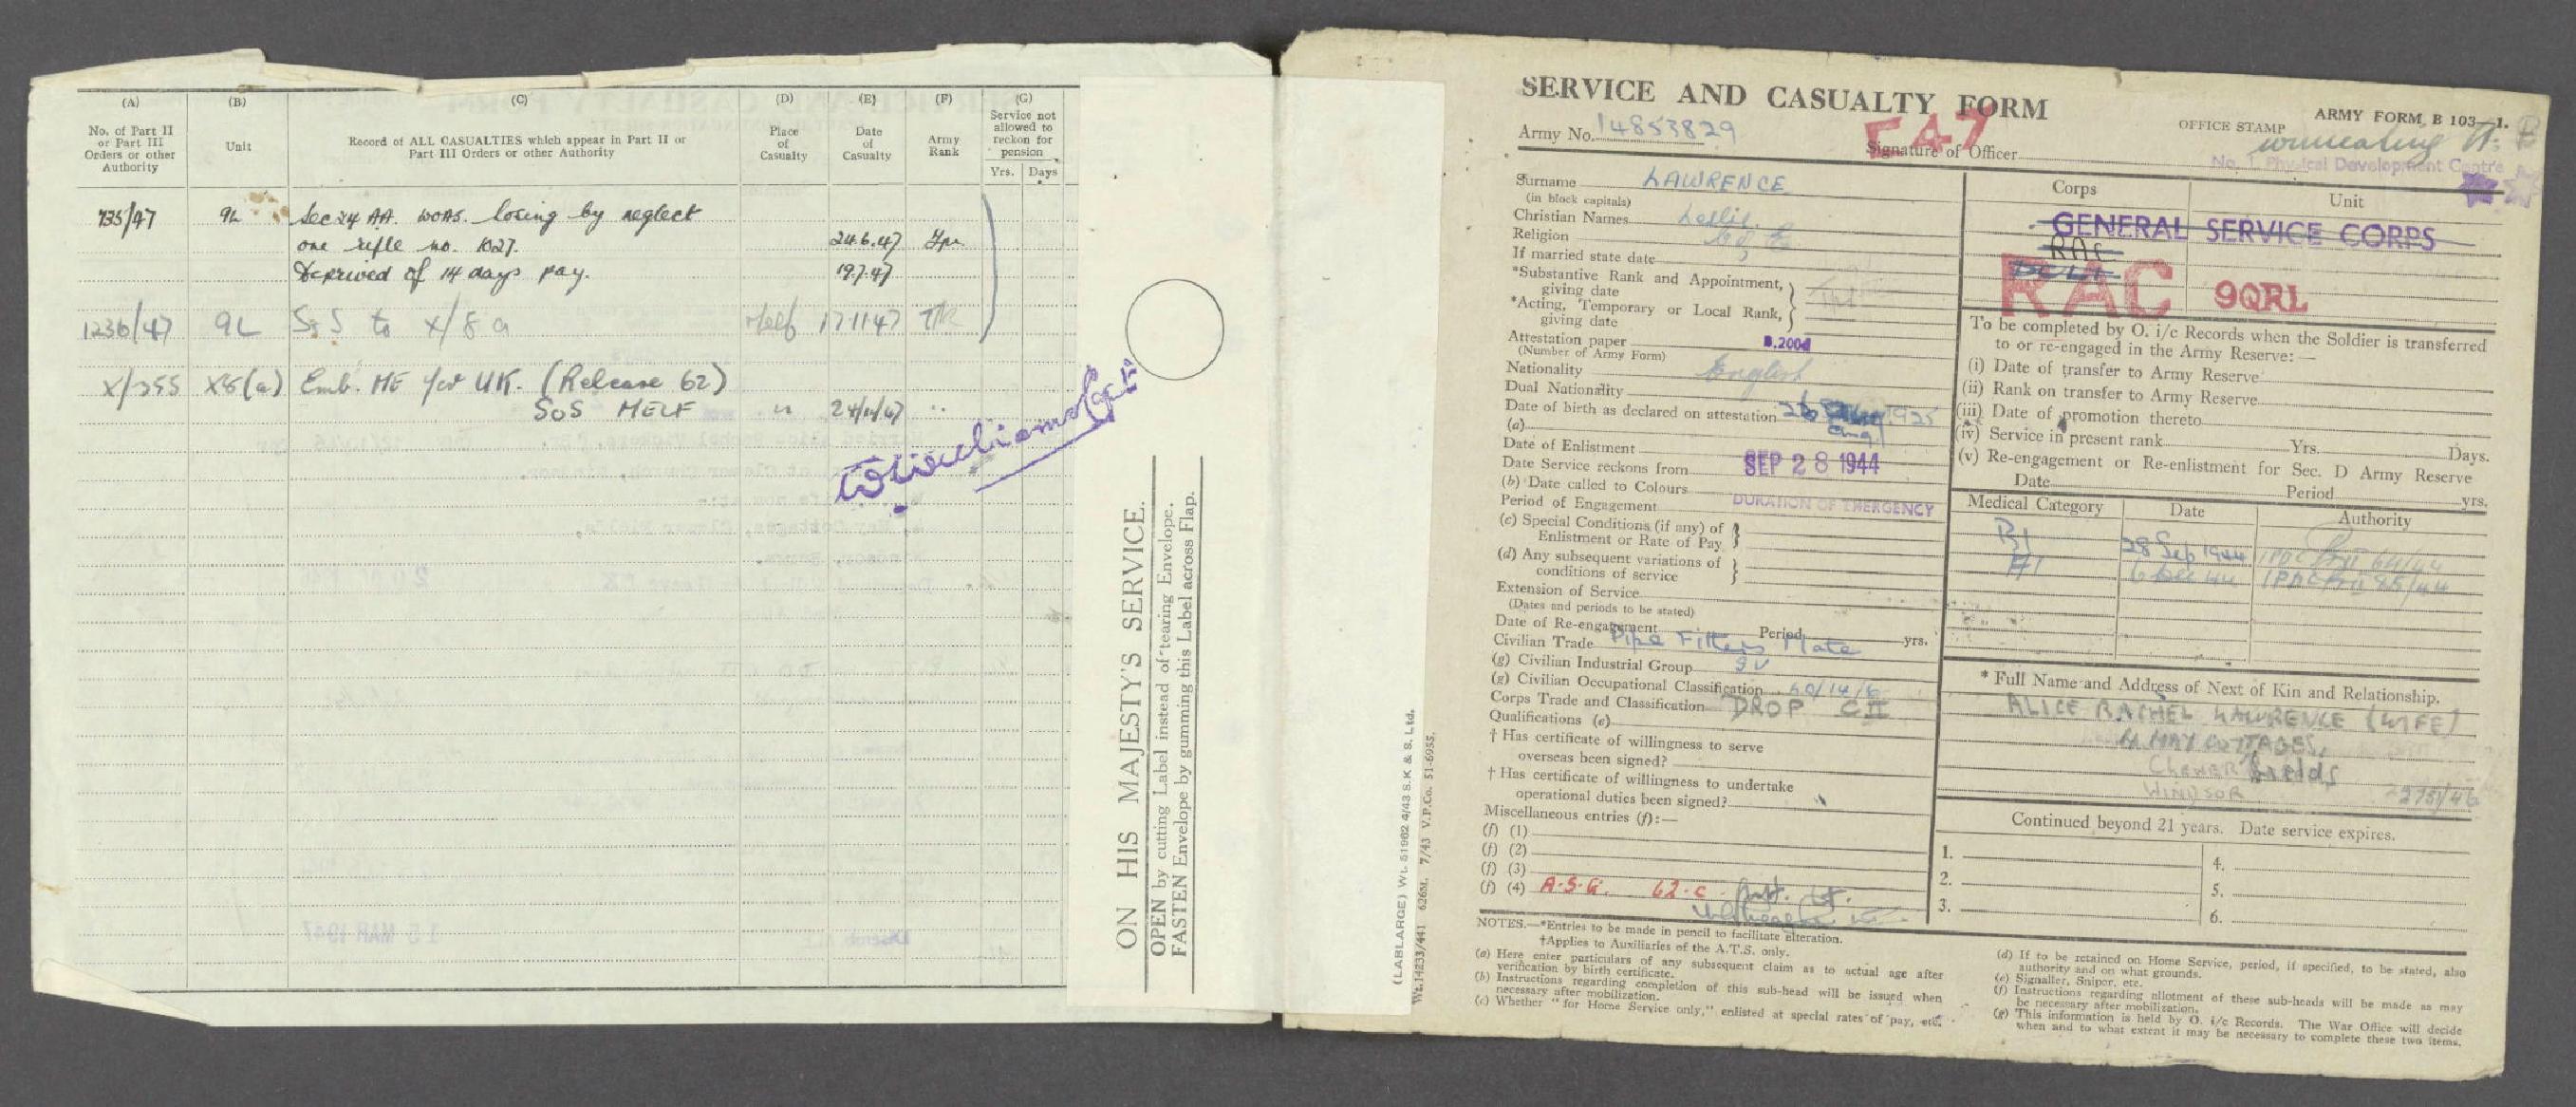 (A)
(B)
(C)
(D)
(E)
(F)
(G)
No. of Part II
or Part III
Orders or other
Authority
Unit
Record of ALL CASUALTIES which appear in Part II or
Part III Orders or other Authority
Place
of
Casualty
Date
of
Casualty
Army
Rank
Service not
allowed to
reckon for
pension
Yrs. Days
735/47 9L Sec 24 AA. WOAS. losing by neglect
one rifle no. 1027. 24.6.47 Tpr
Deprived of 14 days pay. 19.7.47
1236/47 9L SoS to X/8a Melf 171147 TPR
X/355 X8(a) Emb. ME for UK. (Release 62)
SOS MELF " 24/11/47 "
ON HIS MAJESTY'S SERVICE.
OPEN by cutting Label instead of tearing Envelope.
FASTEN Envelope by gumming this Label across Flap.
(LABLARGE) Wt. 51982 4/43 S.K & S. Ltd.
Wt.14233/441 626M. 7/43 V.P.Co. 51-6955.
SERVICE AND CASUALTY FORM
ARMY FORM B 103—1.
Army No. 14853829
E47
Signature of Officer
OFFICE STAMP
No. 1 Physical Development Centre
Surname LAWRENCE
(in block capitals)
Christian Names Leslie.
Religion C of E
If married state date
*Substantive Rank and Appointment,
giving date
*Acting, Temporary or Local Rank,
giving date
Attestation paper B.2004
(Number of Army Form)
Nationality English
Dual Nationality
Date of birth as declared on attestation 26 Aug 1925
(a)
Date of Enlistment
Date Service reckons from SEP 28 1944
(b) Date called to Colours
Period of Engagement DURATION OF EMERGENCY
(c) Special Conditions (if any) of
Enlistment or Rate of Pay
(d) Any subsequent variations of
conditions of service
Extension of Service
(Dates and periods to be stated)
Date of Re-engagement Period yrs.
Civilian Trade Pipe Fitters Mate
(g) Civilian Industrial Group
(g) Civilian Occupational Classification
Corps Trade and Classification DROP CII
Qualifications (e)
† Has certificate of willingness to serve
overseas been signed?
† Has certificate of willingness to undertake
operational duties been signed?
Miscellaneous entries (f):—
(f) (1)
(f) (2)
(f) (3)
(f) (4) A.S.G. 62.C
Corps
Unit
GENERAL SERVICE CORPS
RAC
RAC 9QRL
To be completed by O. i/c Records when the Soldier is transferred
to or re-engaged in the Army Reserve:—
(i) Date of transfer to Army Reserve
(ii) Rank on transfer to Army Reserve
(iii) Date of promotion thereto
(iv) Service in present rank Yrs. Days.
(v) Re-engagement or Re-enlistment for Sec. D Army Reserve
Date Period yrs.
Medical Category Date Authority
B1 28 Sep 1944
A1 6 Dec 44
* Full Name and Address of Next of Kin and Relationship.
ALICE RACHEL LAWRENCE (WIFE)
4 MAY COTTAGES,
CLEWER Fields
WINDSOR
Continued beyond 21 years. Date service expires.
1.
2.
3.
4.
5.
6.
NOTES.—*Entries to be made in pencil to facilitate alteration.
†Applies to Auxiliaries of the A.T.S. only.
(a) Here enter particulars of any subsequent claim as to actual age after
verification by birth certificate.
(b) Instructions regarding completion of this sub-head will be issued when
necessary after mobilization.
(c) Whether "for Home Service only," enlisted at special rates of pay, etc.
(d) If to be retained on Home Service, period, if specified, to be stated, also
authority and on what grounds.
(e) Signaller, Sniper, etc.
(f) Instructions regarding allotment of these sub-heads will be made as may
be necessary after mobilization.
(g) This information is held by O. i/c Records. The War Office will decide
when and to what extent it may be necessary to complete these two items.